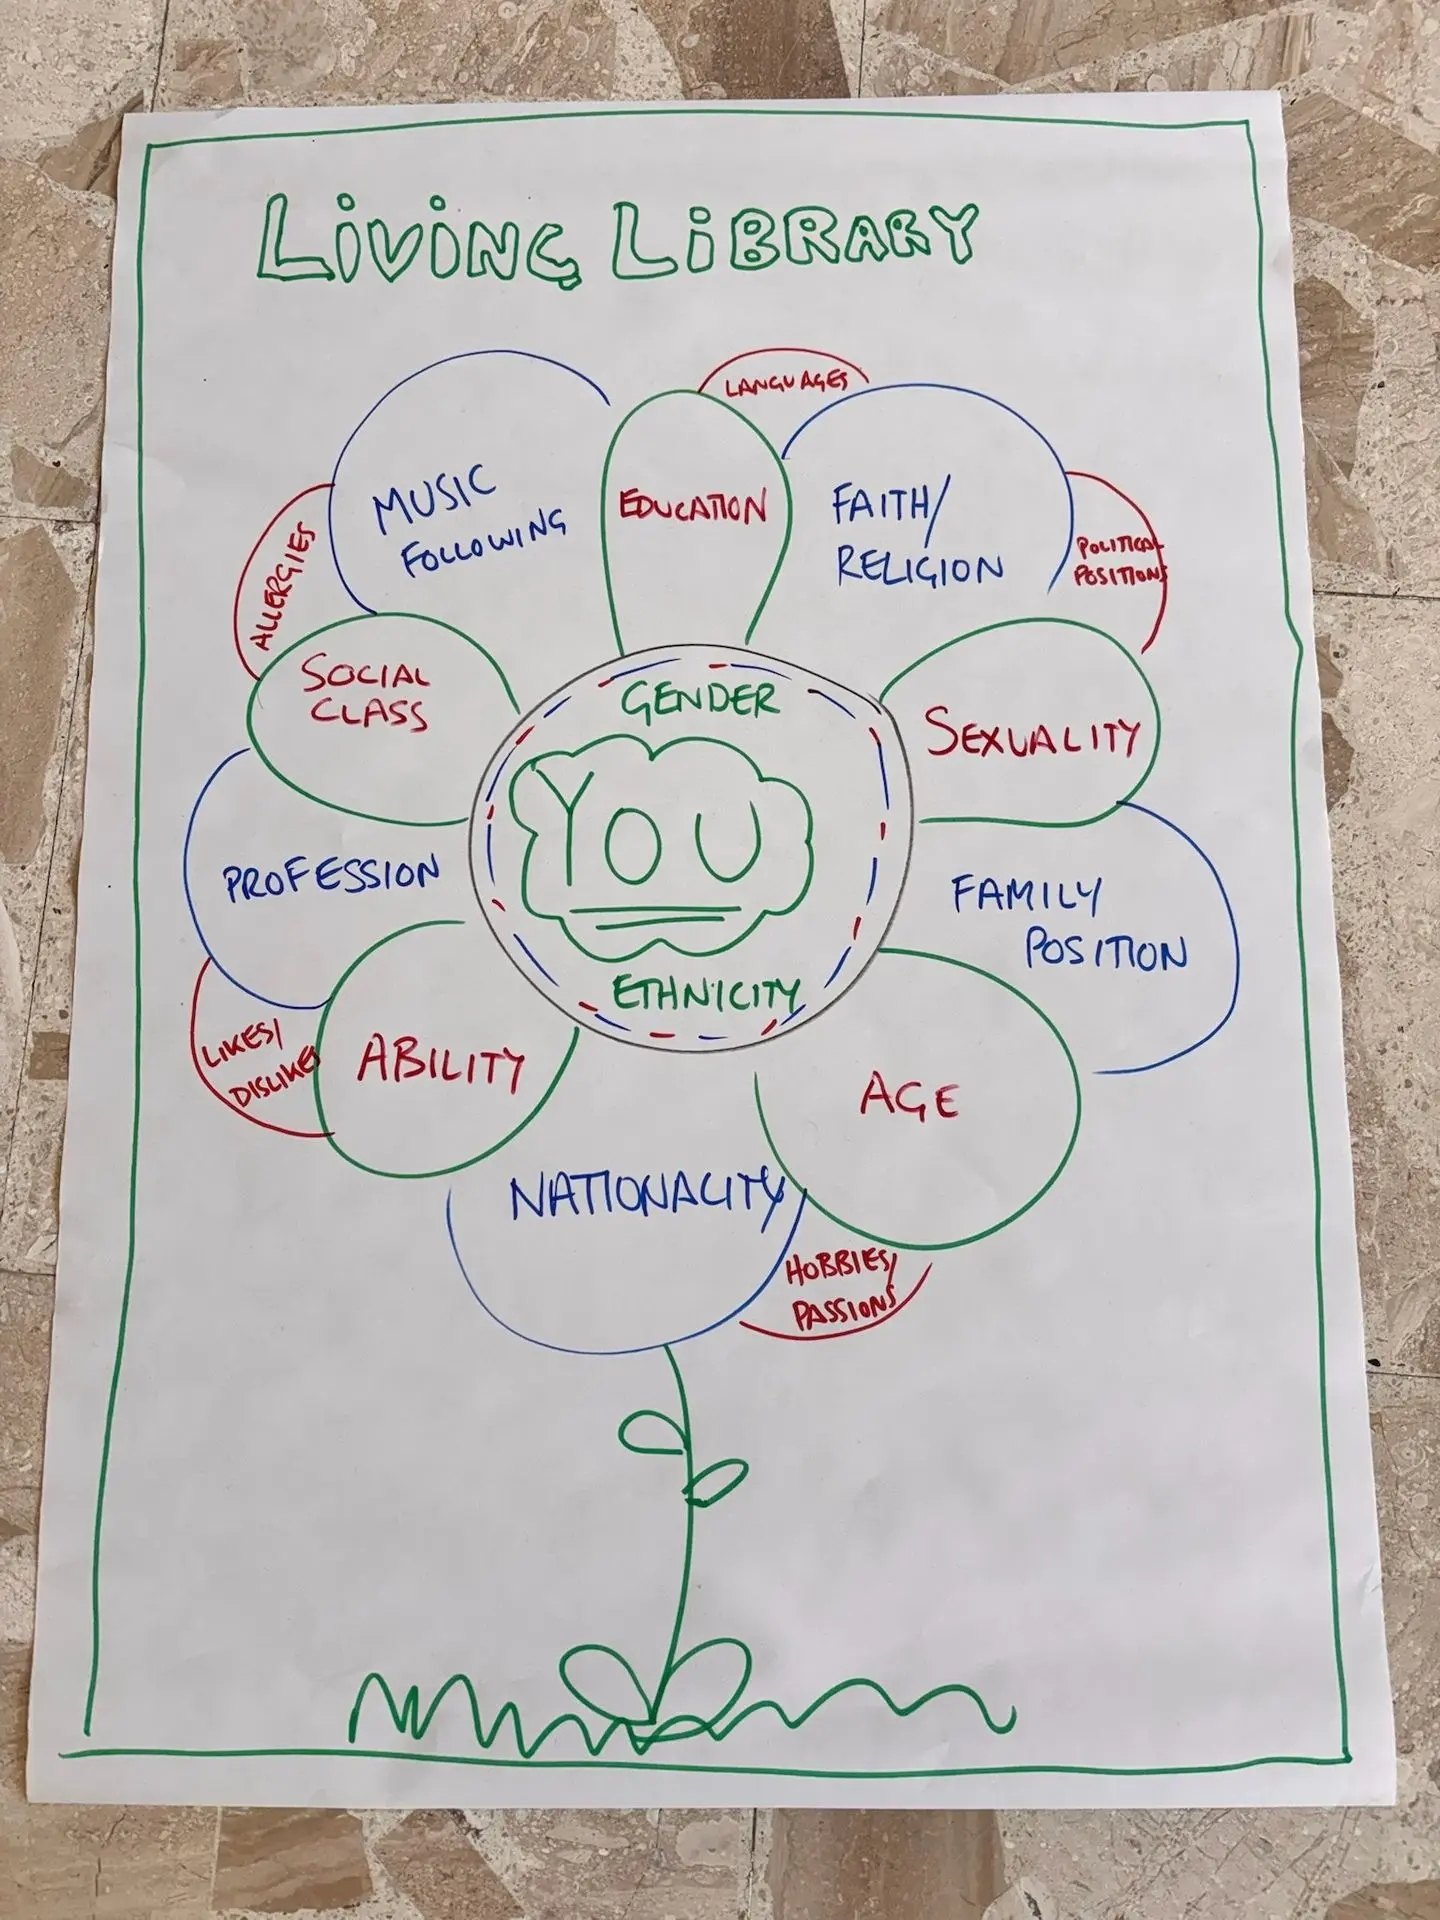 LIVING LIBRARY
LANGUAGES
MUSIC
FOLLOWING
EDUCATION
FAITH/
RELIGION
POLITICAL
POSITIONS
ALLERGIES
SOCIAL
CLASS
GENDER
YOU
ETHNICITY
SEXUALITY
PROFESSION
FAMILY
POSITION
LIKES/
DISLIKES
ABILITY
AGE
NATIONALITY
HOBBIES/
PASSIONS